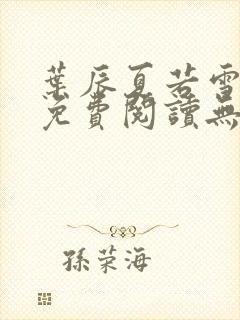 葉辰夏若雪
免費閱讀無
孫荣海